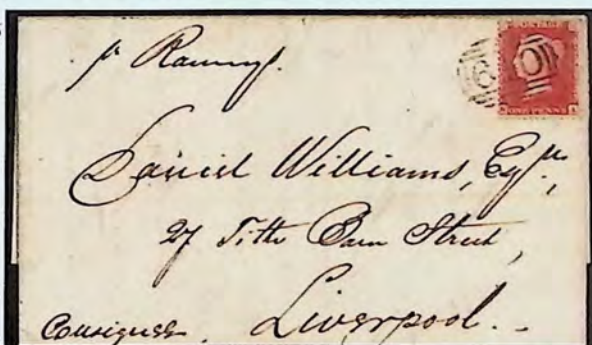 pr
Daniel Williams, Esqre,
27 Tithe Barn Street,
Liverpool.
Consignee
POSTAGE
ONE PENNY